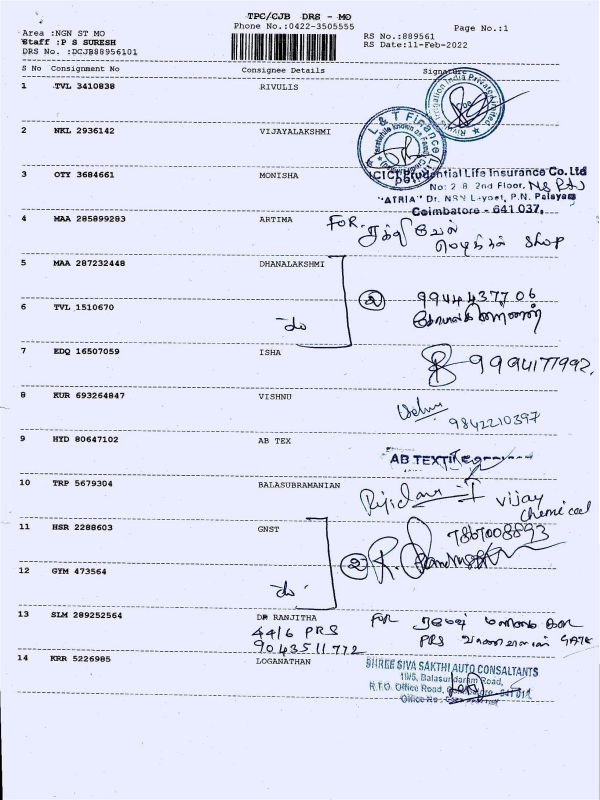 TPC/CJB DRS - MO
Phone No.:0422-3505555
Page No.:1
Area :NGN ST MO
Staff :P S SURESH
DRS No. :DCJB88956101
RS No.:889561
RS Date:11-Feb-2022
S No Consignment No Consignee Details Signature
1 TVL 3410838 RIVULIS
Rivulis Irrigation India Private Limited
2 NKL 2936142 VIJAYALAKSHMI
L & T Finance
3 OTY 3684661 MONISHA
ICICI Prudential Life Insurance Co. Ltd
2nd Floor,
"ATRIA" Dr. NRN Layout, P.N. Palayam
Coimbatore - 641 037.
4 MAA 285899283 ARTIMA
FOR
shop
5 MAA 287232448 DHANALAKSHMI
2
9944437706
6 TVL 1510670
do
7 EDQ 16507059 ISHA
9994177992.
8 KUR 693264847 VISHNU
9842210397
9 HYD 80647102 AB TEX
AB TEX
10 TRP 5679304 BALASUBRAMANIAN
vijay
chemical
11 HSR 2288603 GNST
2
7867008893
12 GYM 473564
do
13 SLM 289252564 DR RANJITHA
44/6 PRS
9043511772
FOR
PRS
GATE
14 KRR 5226985 LOGANATHAN
SHREE SIVA SAKTHI AUTO CONSULTANTS
19/5, Balasundaram Road,
R.T.O. Office Road, Coimbatore - 641 011
Office No